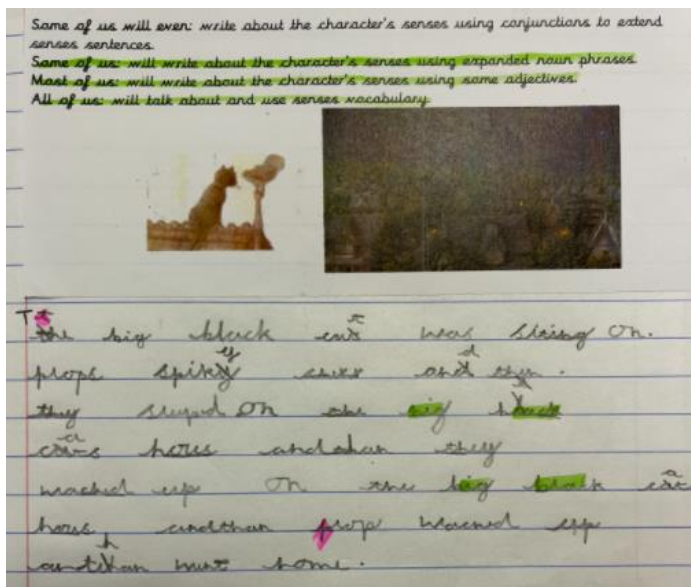 Some of us will even: write about the character's senses using conjunctions to extend
senses sentences.
Some of us: will write about the character's senses using expanded noun phrases.
Most of us: will write about the character's senses using some adjectives.
All of us: will talk about and use senses vocabulary.
T t
the big black cat was on.
props spiky and then.
they on the big
cats hous andthan they
wached up on the big black cat
hous andthan prop wached upp
andthan wint home.